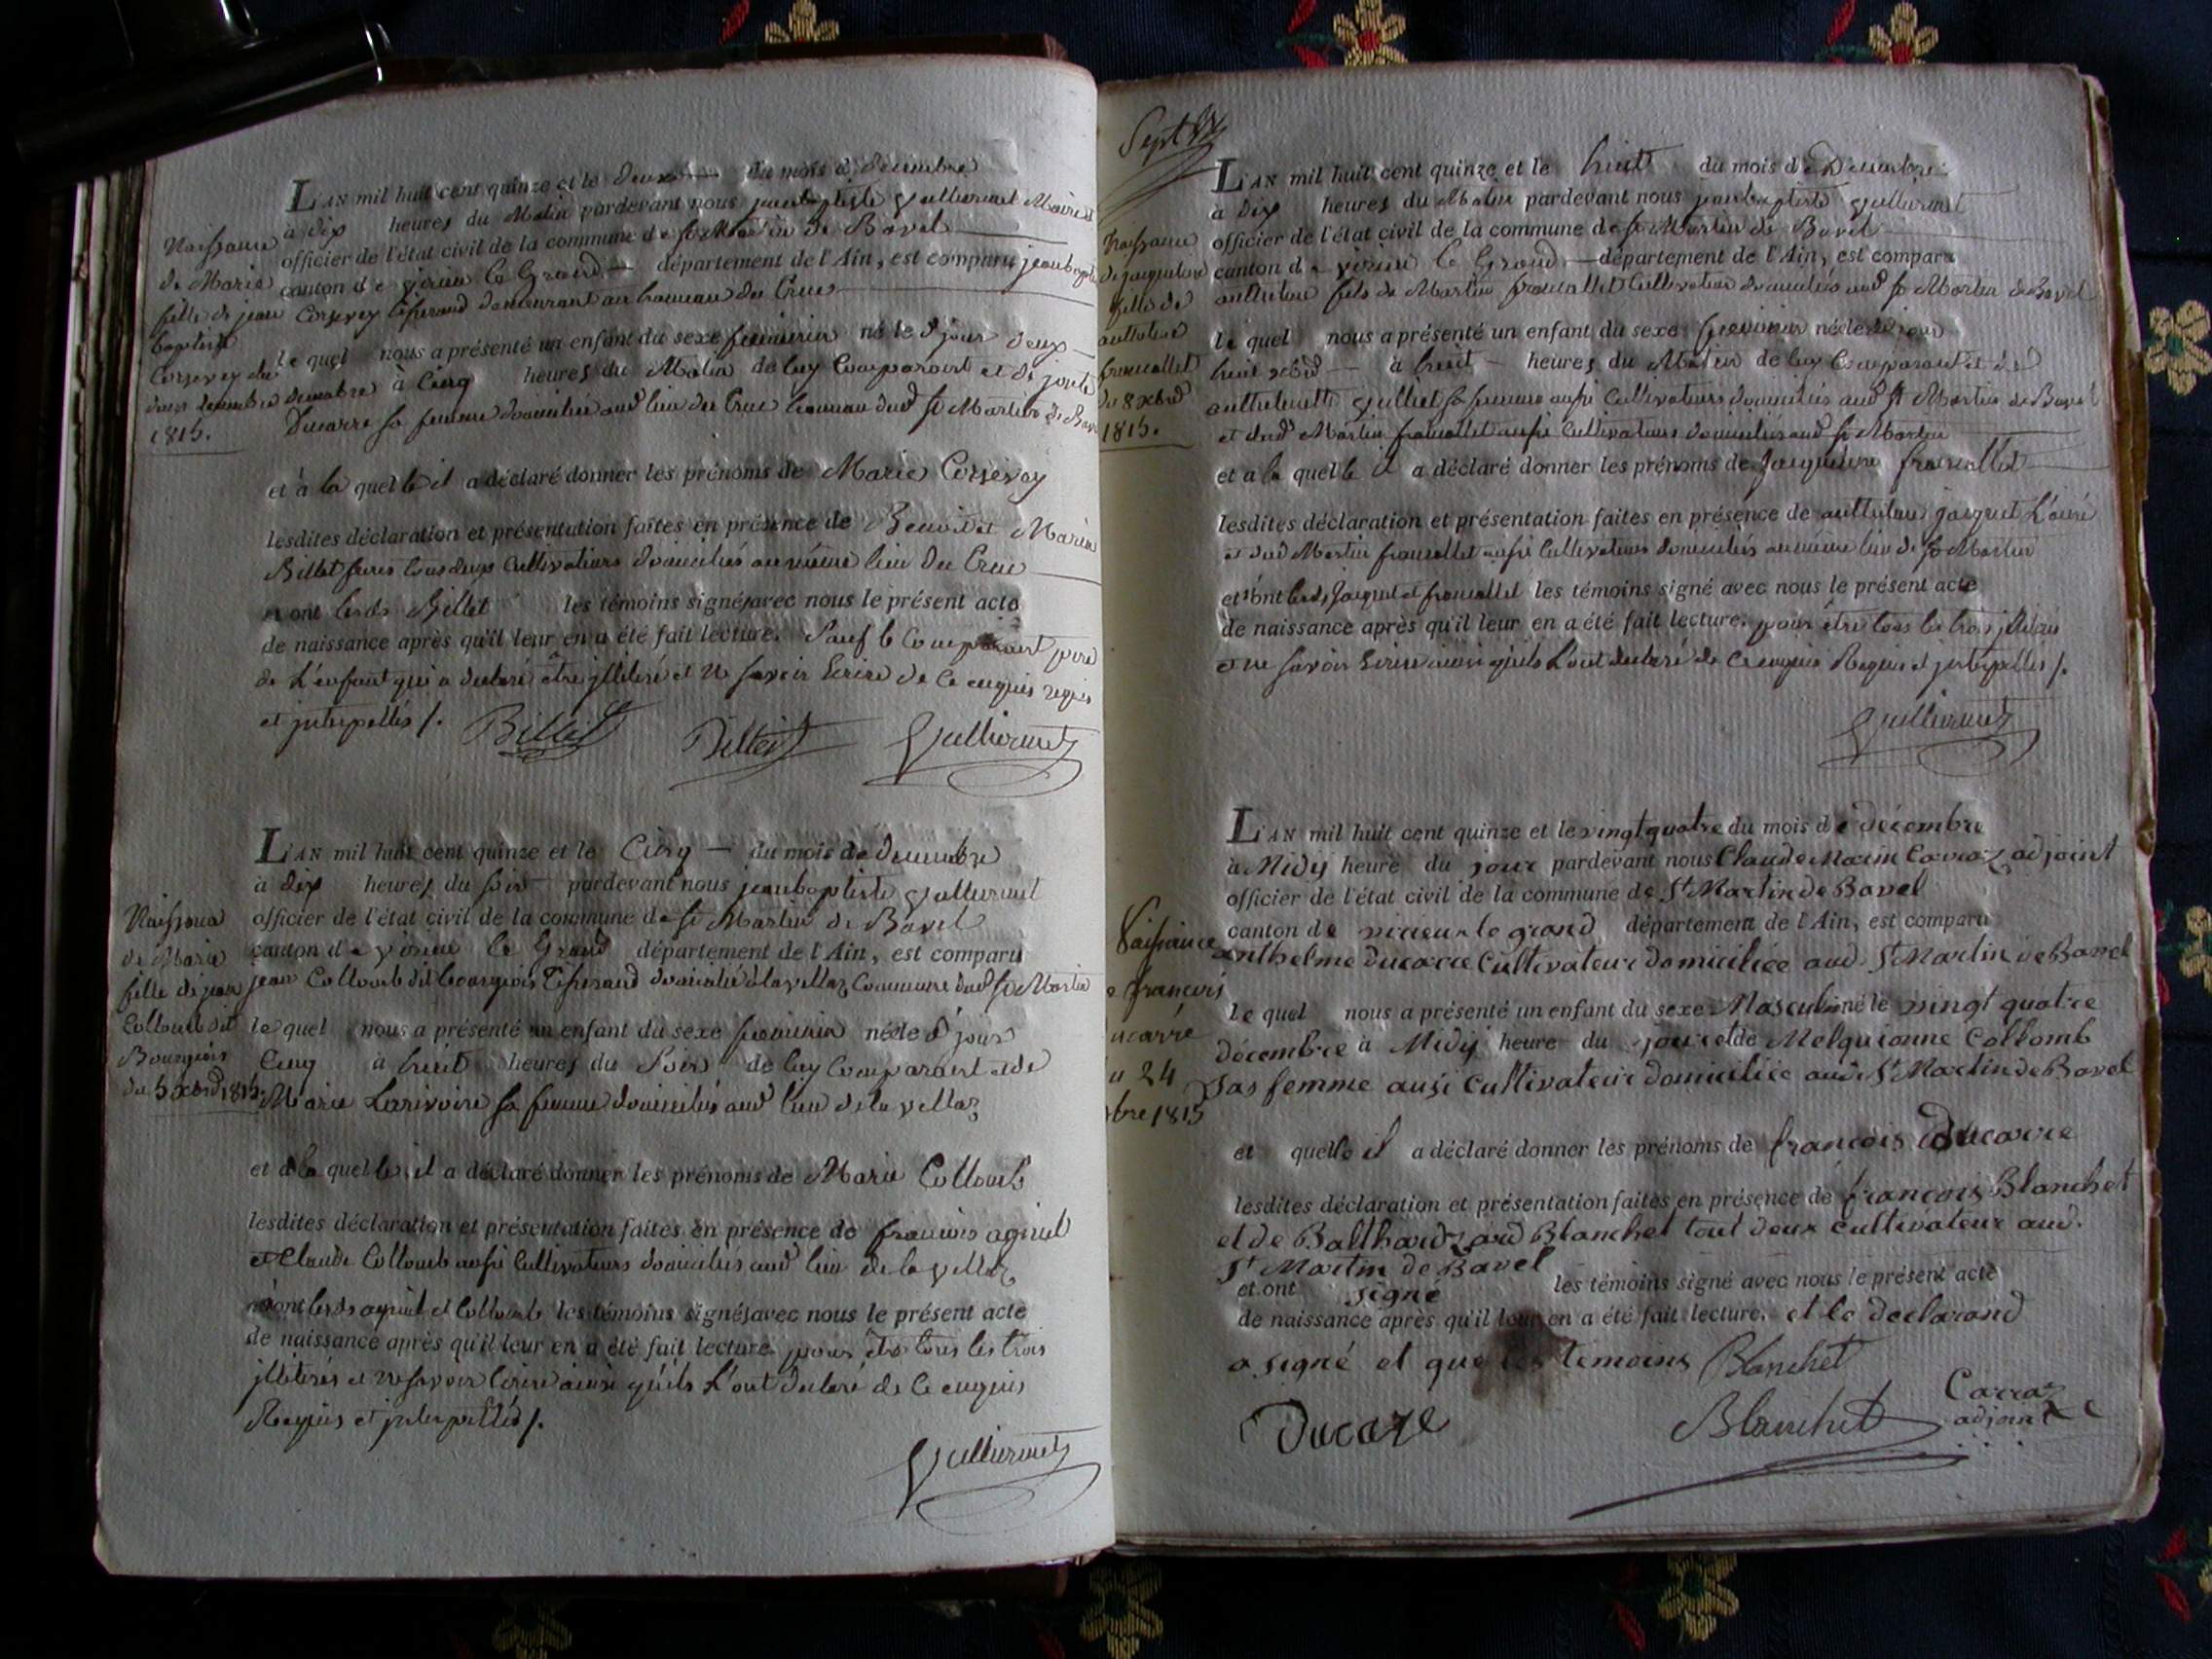 L'AN mil huit cent quinze et le deux du mois de décembre
à dix heures du Matin pardevant nous jeanbaptiste Maire et
officier de l'état civil de la commune de St Martin de Bavel
canton de virieu le Grand département de l'Ain, est comparu jeanbapte
Corsevey tisserand demeurant au hameau du Cruc
le quel nous a présenté un enfant du sexe feminin né le d jour deux
decembre à Cinq heures du Matin de luy Comparant et de
Ducarre sa femme domiciliés aud lieu du Cruc hameau dud St Martin de Bavel
et à la quelle il a déclaré donner les prénoms de Marie Corsevey
lesdites déclaration et présentation faites en présence de Benoit et Marin
Billet freres tous deux Cultivateurs domiciliés au même lieu du Cruc
et ont lesds Billet les témoins signés avec nous le présent acte
de naissance après qu'il leur en a été fait lecture. Sauf le Comparant pere
de L'enfant qui a declaré être jlliteré et Ne savoir Ecrire de Ce enquis requis
et jnterpellés /.
Billet Billet
Naissance
de Marie
fille de jean
baptiste
Corsevey du
deux decembre
1815.
L'AN mil huit cent quinze et le Cinq du mois de decembre
à dix heures du soir pardevant nous jeanbaptiste
officier de l'état civil de la commune de St Martin de Bavel
canton de virieu le Grand département de l'Ain, est comparu
jean Collomb dit bourgeois Tisserand domicilié à lavellaz Commune dud St Martin
le quel nous a présenté un enfant du sexe feminin né le d jour
Cinq à huit heures du Soir de luy Comparant et de
Marie Larivoire sa femme domiciliés aud lieu de la vellaz
et à la quelle il a déclaré donner les prénoms de Marie Collomb
lesdites déclaration et présentation faites en présence de francois
et Claude Collomb aussi Cultivateurs domiciliés aud lieu de la vellaz
ont lesds et Collomb les témoins signés avec nous le présent acte
de naissance après qu'il leur en a été fait lecture. pour être tous les trois
jlliterés et ne savoir Ecrire ainsi qu'ils L'ont declaré de Ce enquis
Requis et jnterpellés /.
Naissance
de Marie
fille de jean
Collomb dit
Bourgeois
du 5 xbre 1815.
Sept
L'AN mil huit cent quinze et le huit du mois de Decembre
à Dix heures du Matin pardevant nous jeanbaptiste
officier de l'état civil de la commune de St Martin de Bavel
canton de virieu le Grand département de l'Ain, est comparu
anthelme fils de Martin Cultivateur domiciliés aud St Martin de Bavel
le quel nous a présenté un enfant du sexe feminin né le d jour
huit à huit heures du Matin de luy Comparant et de
anthelmette sa femme aussi Cultivateurs domiciliés aud St Martin de Bavel
et dud Martin aussi Cultivateurs domiciliés aud St Martin
et a la quelle il a déclaré donner les prénoms de Jacqueline
lesdites déclaration et présentation faites en présence de anthelme jacquet L'ainé
et dud Martin aussi Cultivateurs domiciliés au même lieu de St Martin
et n'ont lesds Jacquet et les témoins signé avec nous le présent acte
de naissance après qu'il leur en a été fait lecture. pour être tous les trois
et ne savoir Ecrire ainsi qu'ils L'ont declaré de Ce enquis Requis et jnterpellés /.
Naissance
de jacqueline
fille de
anthelme
du 8 xbre
1815.
L'AN mil huit cent quinze et le vingt quatre du mois de décembre
à Midy heure du jour pardevant nous Claude Marin Carraz adjoint
officier de l'état civil de la commune de St Martin de Bavel
canton de virieux le grand département de l'Ain, est comparu
anthelme ducarre Cultivateur domiciliée aud. St Martin de Bavel
le quel nous a présenté un enfant du sexe Masculin né le vingt quatre
décembre à Midy heure du jour et de Melquionne Collomb
sas femme ausi Cultivateur domiciliée aud. St Martin de Bavel
et quelle il a déclaré donner les prénoms de françois ducarre
lesdites déclaration et présentation faites en présence de françois Blanchet
et de Balthardzard Blanchet tout deux cultivateur aud.
St Martin de Bavel
et ont signé les témoins signé avec nous le présent acte
de naissance après qu'il leur en a été fait lecture. et le declarand
a signé et que les temoins Blanchet
Ducare Blanchet Carraz
adjoint
Naissance
e françois
ucarré
u 24
bre 1815